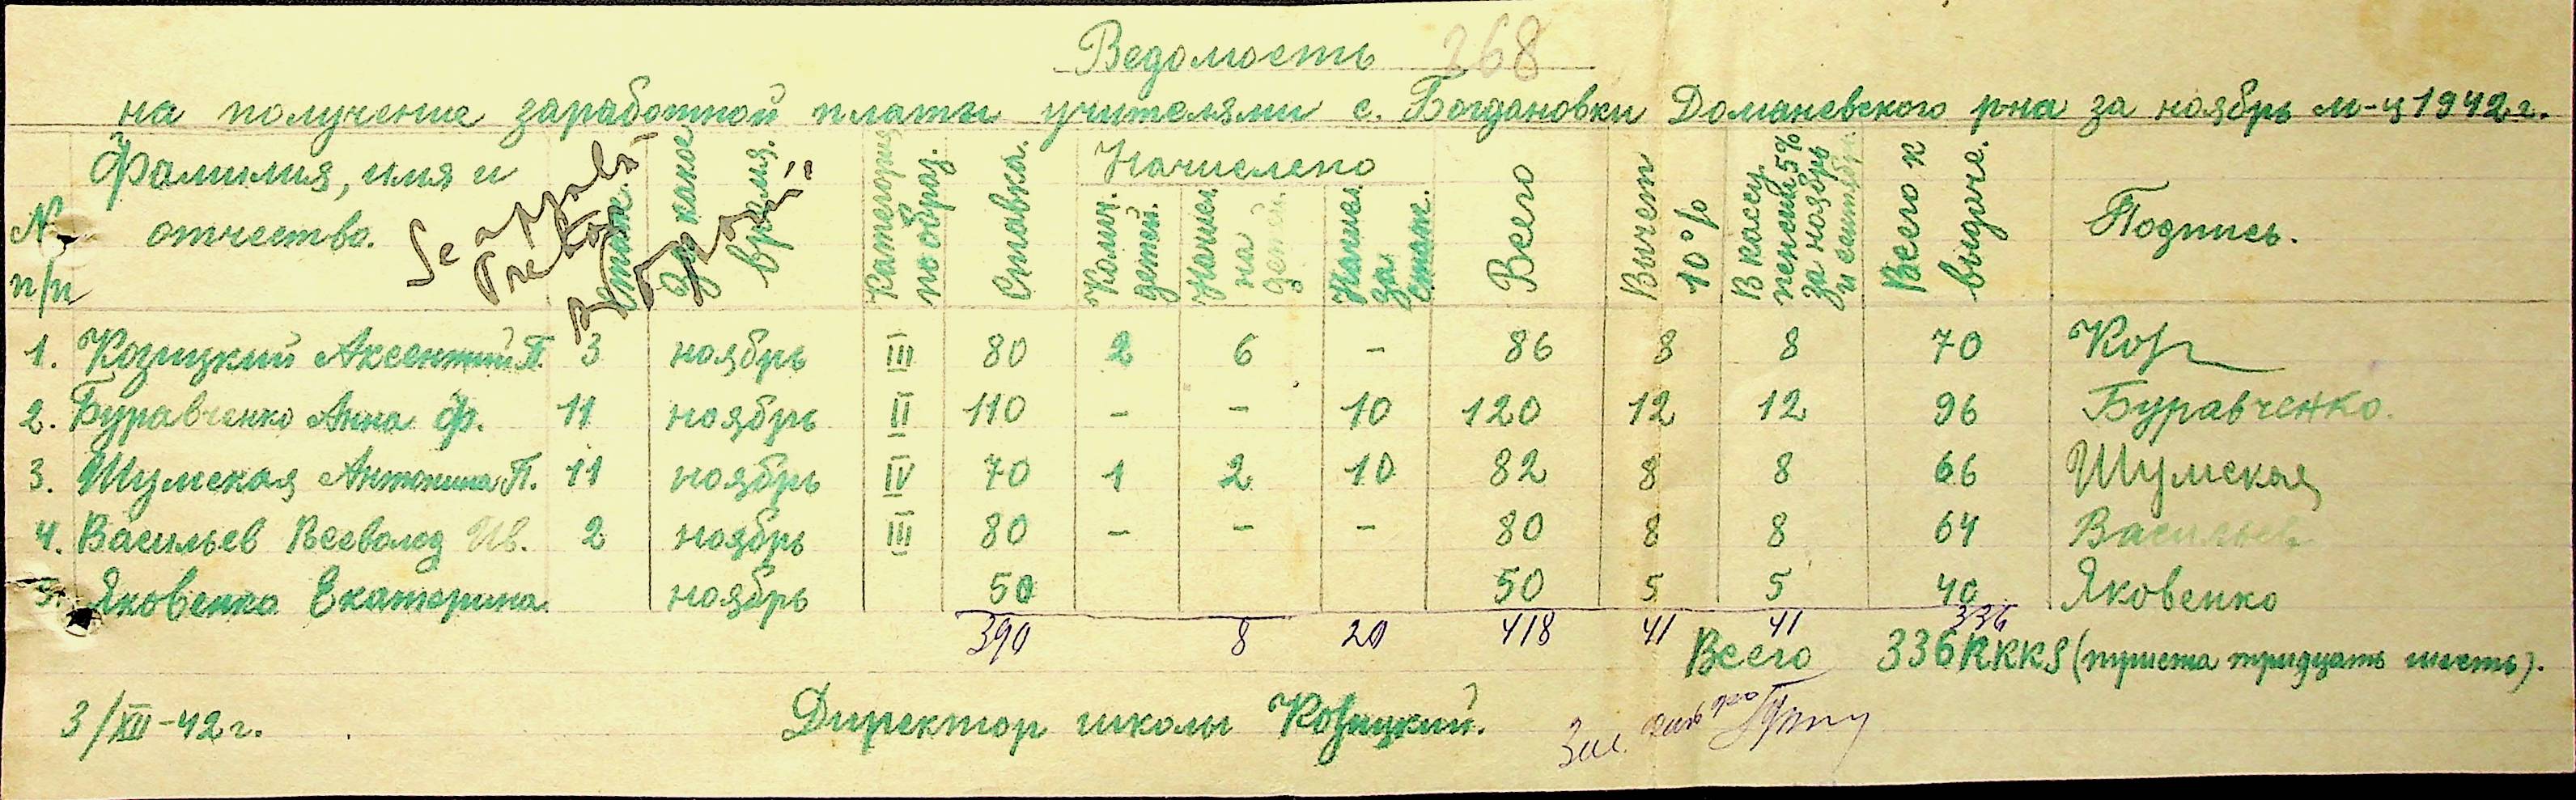 Ведомость 368
на получение заработной платы учителями с. Богдановки Доманевского р-на за ноябрь м-ц 1942 г.
№ п/п Фамилия, имя и отчество. Стаж. За какое время. Категория по образ. Ставка. Начислено Колич. детей. Начисл. на детей. Начисл. за стаж. Всего Вычет 10% В кассу пенсий 5% за ноябрь и сентябрь. Всего к выдаче. Подпись.
Se aprobă
1. Козицкий Аксентий П. 3 ноябрь III 80 2 6 – 86 8 8 70 Коз
2. Буравченко Анна Ф. 11 ноябрь II 110 – – 10 120 12 12 96 Буравченко.
3. Шумская Антонина П. 11 ноябрь IV 70 1 2 10 82 8 8 66 Шумская
4. Васильев Всеволод Ив. 2 ноябрь III 80 – – – 80 8 8 64 Васильев
5. Яковенко Екатерина. ноябрь 50 50 5 5 40 Яковенко
390 8 20 418 41 41 336
Всего 336 RKKS (триста тридцать шесть).
3/XII-42 г. Директор школы Козицкий.